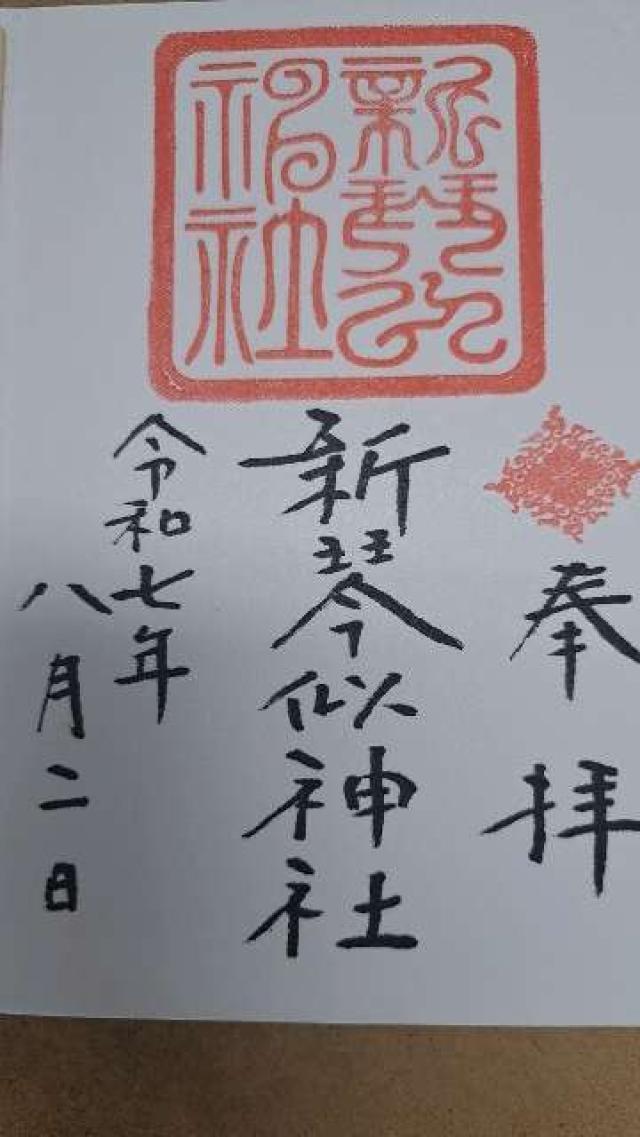 奉拝
新琴似神社
令和七年
八月二日
新琴似
神社